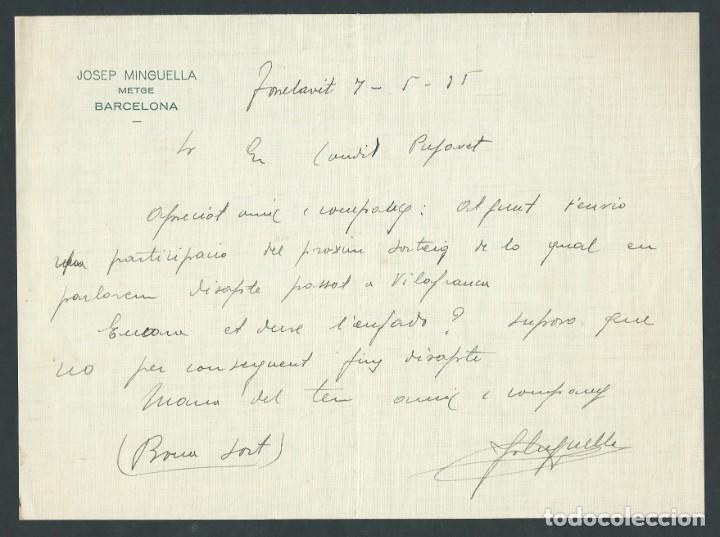 JOSEP MINGUELLA
METGE
BARCELONA
Fonelavit 7 - 5 - 35
Sr En Candit
Apreciat amic i company: Adjunt t'envio
una participació del proxim sorteig de lo qual en
parlarem disapte passat a Vilafranca
Encara et dura l'enfado? suposo que
no per consequent fins disapte
Mana del teu amic i company
(Bona sort)
todocoleccion.net